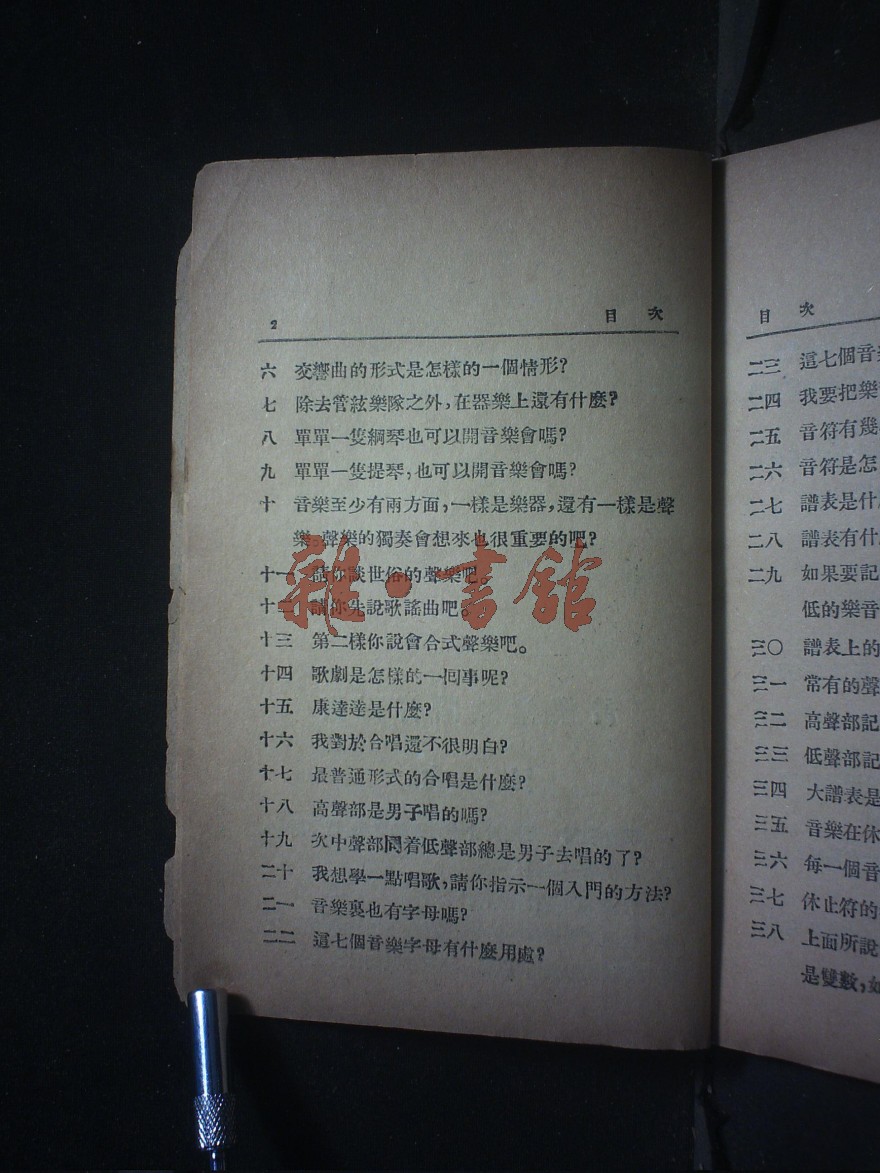 2 目次
六 交響曲的形式是怎樣的一個情形?
七 除去管絃樂隊之外,在器樂上還有什麼?
八 單單一隻鋼琴也可以開音樂會嗎?
九 單單一隻提琴,也可以開音樂會嗎?
十 音樂至少有兩方面,一樣是樂器,還有一樣是聲
樂,聲樂的獨奏會想來也很重要的吧?
十一 請你談世俗的聲樂吧。
十二 請你先說歌謠曲吧。
十三 第二樣你說會合式聲樂吧。
十四 歌劇是怎樣的一回事呢?
十五 康達達是什麼?
十六 我對於合唱還不很明白?
十七 最普通形式的合唱是什麼?
十八 高聲部是男子唱的嗎?
十九 次中聲部同着低聲部總是男子去唱的了?
二十 我想學一點唱歌,請你指示一個入門的方法?
二一 音樂裏也有字母嗎?
二二 這七個音樂字母有什麼用處?
雜·書館
目次
二三 這七個音
二四 我要把樂
二五 音符有幾
二六 音符是怎
二七 譜表是什
二八 譜表有什
二九 如果要記
低的樂音
三〇 譜表上的
三一 常有的聲
三二 高聲部記
三三 低聲部記
三四 大譜表是
三五 音樂在休
三六 每一個音
三七 休止符的
三八 上面所說
是雙數,如